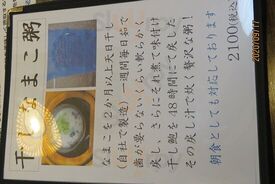 干しなまこ粥
なまこを2か月以上天日干し
(自社で製造)一週間毎日茹で
歯が要らないくらい軟らかく
戻し、さらにそれ煮て味付け
干し鮑を48時間にて戻した
その戻し汁で炊く贅沢な粥!
朝食としても対応しております
2100(税込)
2020/09/17